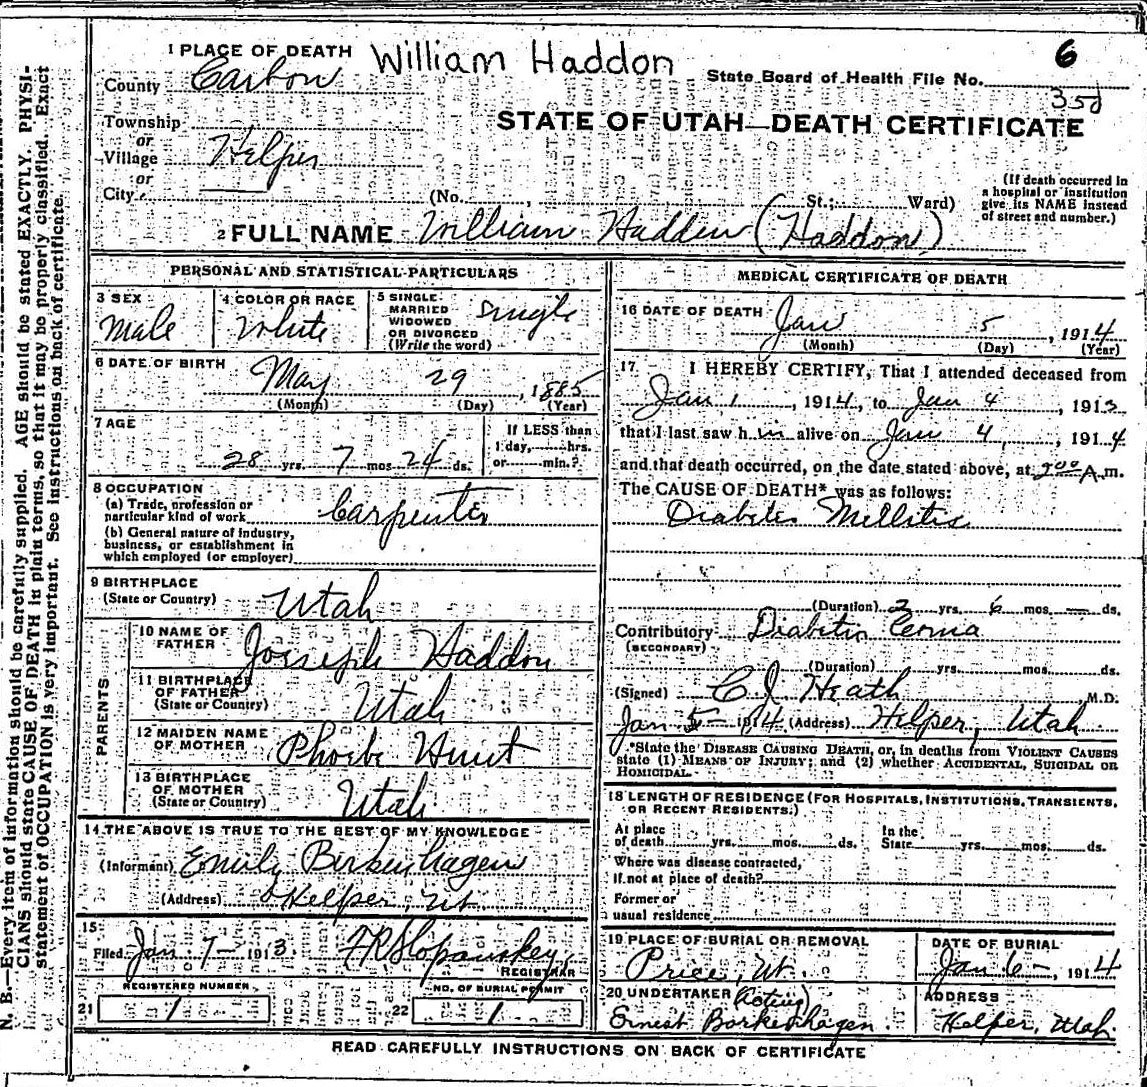 William Haddon
1 PLACE OF DEATH
County Carbon
State Board of Health File No. 6
35d
Township
or
Village Helper
or
City
STATE OF UTAH—DEATH CERTIFICATE
(No. St.; Ward)
(If death occurred in
a hospital or institution
give its NAME instead
of street and number.)
2 FULL NAME William Hadden (Haddon)
PERSONAL AND STATISTICAL PARTICULARS
3 SEX
Male
4 COLOR OR RACE
White
5 SINGLE
MARRIED
WIDOWED
OR DIVORCED
(Write the word)
Single
6 DATE OF BIRTH May 29, 1885
(Month) (Day) (Year)
7 AGE
28 yrs. 7 mos. 24 ds.
If LESS than
1 day, hrs.
or min.?
8 OCCUPATION
(a) Trade, profession or
particular kind of work Carpenter
(b) General nature of industry,
business, or establishment in
which employed (or employer)
9 BIRTHPLACE
(State or Country) Utah
PARENTS
10 NAME OF
FATHER Joeseph Haddon
11 BIRTHPLACE
OF FATHER
(State or Country) Utah
12 MAIDEN NAME
OF MOTHER Phoebe Hunt
13 BIRTHPLACE
OF MOTHER
(State or Country) Utah
14 THE ABOVE IS TRUE TO THE BEST OF MY KNOWLEDGE
(Informant) Emily Birkenhagen
(Address) Helper, Ut.
15
Filed Jan 7 - 1913
REGISTRAR
REGISTERED NUMBER
21 1
NO. OF BURIAL PERMIT
22 1
MEDICAL CERTIFICATE OF DEATH
16 DATE OF DEATH Jan 5, 1914
(Month) (Day) (Year)
17 I HEREBY CERTIFY, That I attended deceased from
Jan 1, 1914, to Jan 4, 1913
that I last saw him alive on Jan 4, 1914
and that death occurred, on the date stated above, at 200 A.m.
The CAUSE OF DEATH* was as follows:
Diabetes Mellitis
(Duration) 2 yrs. 6 mos. — ds.
Contributory Diabetic
(SECONDARY)
(Duration) yrs. mos. ds.
(Signed) C J Heath M.D.
Jan 5 - 1914 (Address) Helper, Utah
*State the DISEASE CAUSING DEATH, or, in deaths from VIOLENT CAUSES
state (1) MEANS OF INJURY; and (2) whether ACCIDENTAL, SUICIDAL OR
HOMICIDAL.
18 LENGTH OF RESIDENCE (FOR HOSPITALS, INSTITUTIONS, TRANSIENTS,
OR RECENT RESIDENTS.)
At place
of death yrs. mos. ds.
In the
State yrs. mos. ds.
Where was disease contracted,
if not at place of death?
Former or
usual residence
19 PLACE OF BURIAL OR REMOVAL
Price, Ut.
DATE OF BURIAL
Jan 6 -, 1914
20 UNDERTAKER (Acting)
Ernest Borkenhagen.
ADDRESS
Helper, Utah.
READ CAREFULLY INSTRUCTIONS ON BACK OF CERTIFICATE
N. B.—Every item of information should be carefully supplied. AGE should be stated EXACTLY. PHYSI-
CIANS should state CAUSE OF DEATH in plain terms, so that it may be properly classified. Exact
statement of OCCUPATION is very important. See instructions on back of certificate.